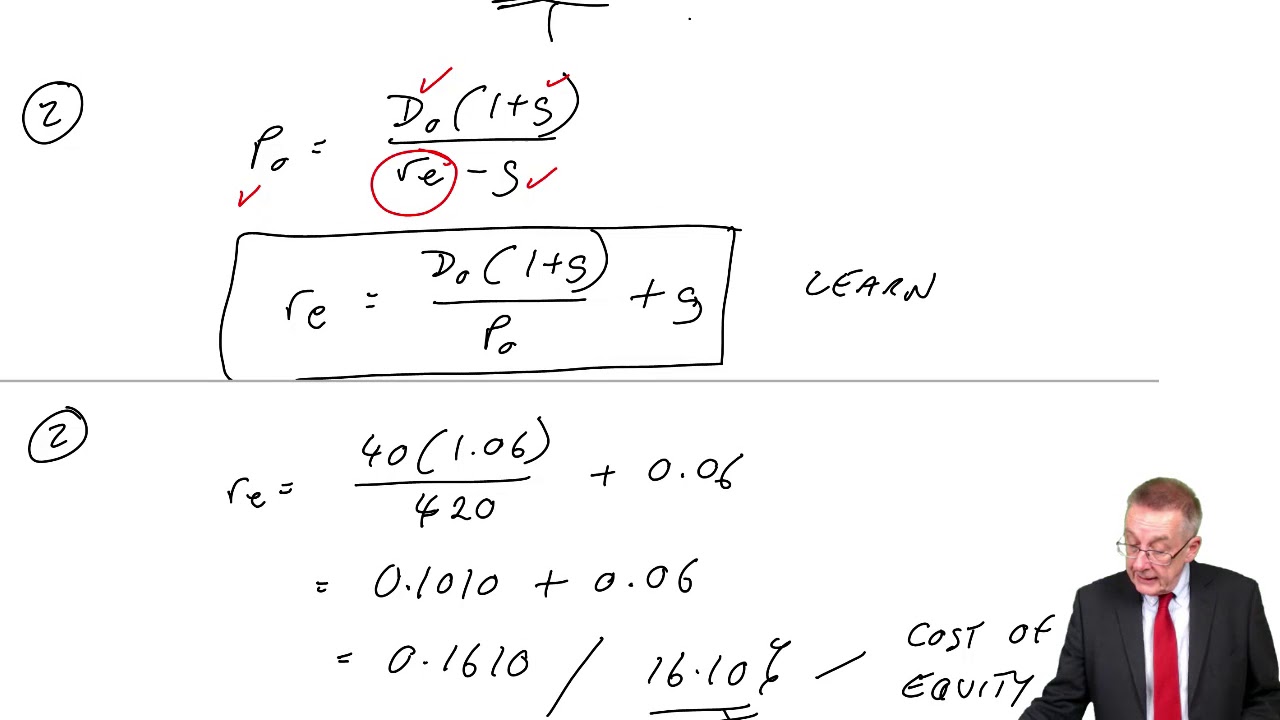 ②
P₀ = D₀(1+g) / re - g
re = D₀(1+g) / P₀ + g LEARN
②
re = 40(1.06) / 420 + 0.06
= 0.1010 + 0.06
= 0.1610 / 16.10% / COST OF EQUITY